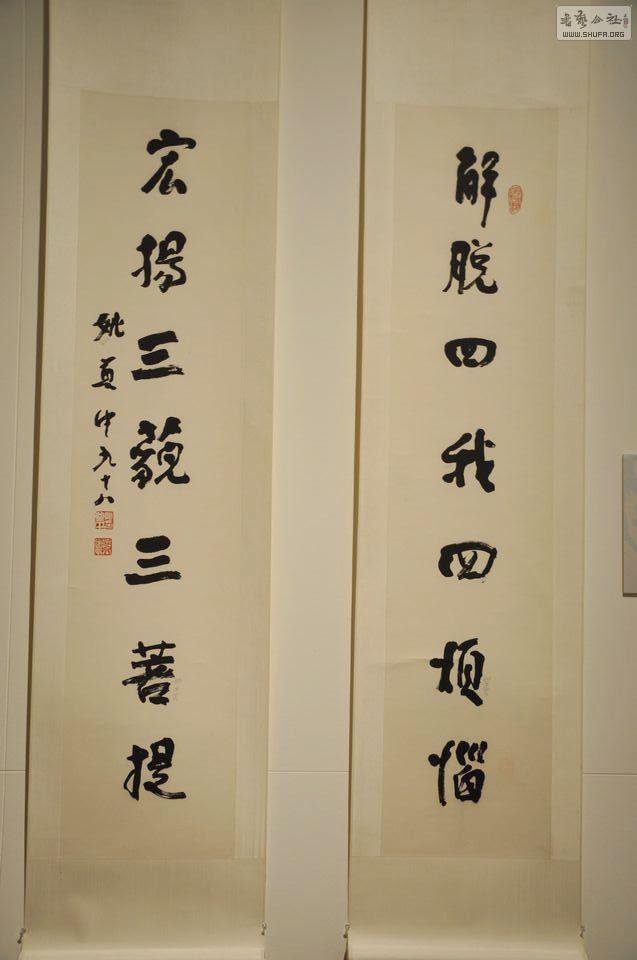 解脱四我四煩惱
宏揚三藐三菩提
姚奠中九十八
书艺公社
WWW.SHUFA.ORG